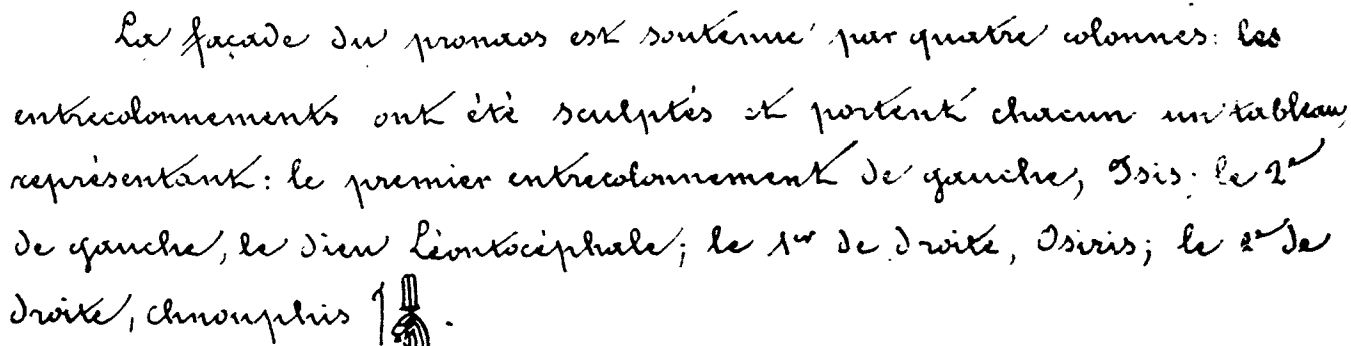 La façade du pronaos est soutenue par quatre colonnes: les
entrecolonnements ont été sculptés et portent chacun un tableau,
représentant: le premier entrecolonnement de gauche, Isis; le 2e
de gauche, le dieu Léontocéphale; le 1er de droite, Osiris; le 2e de
droite, chnouphis